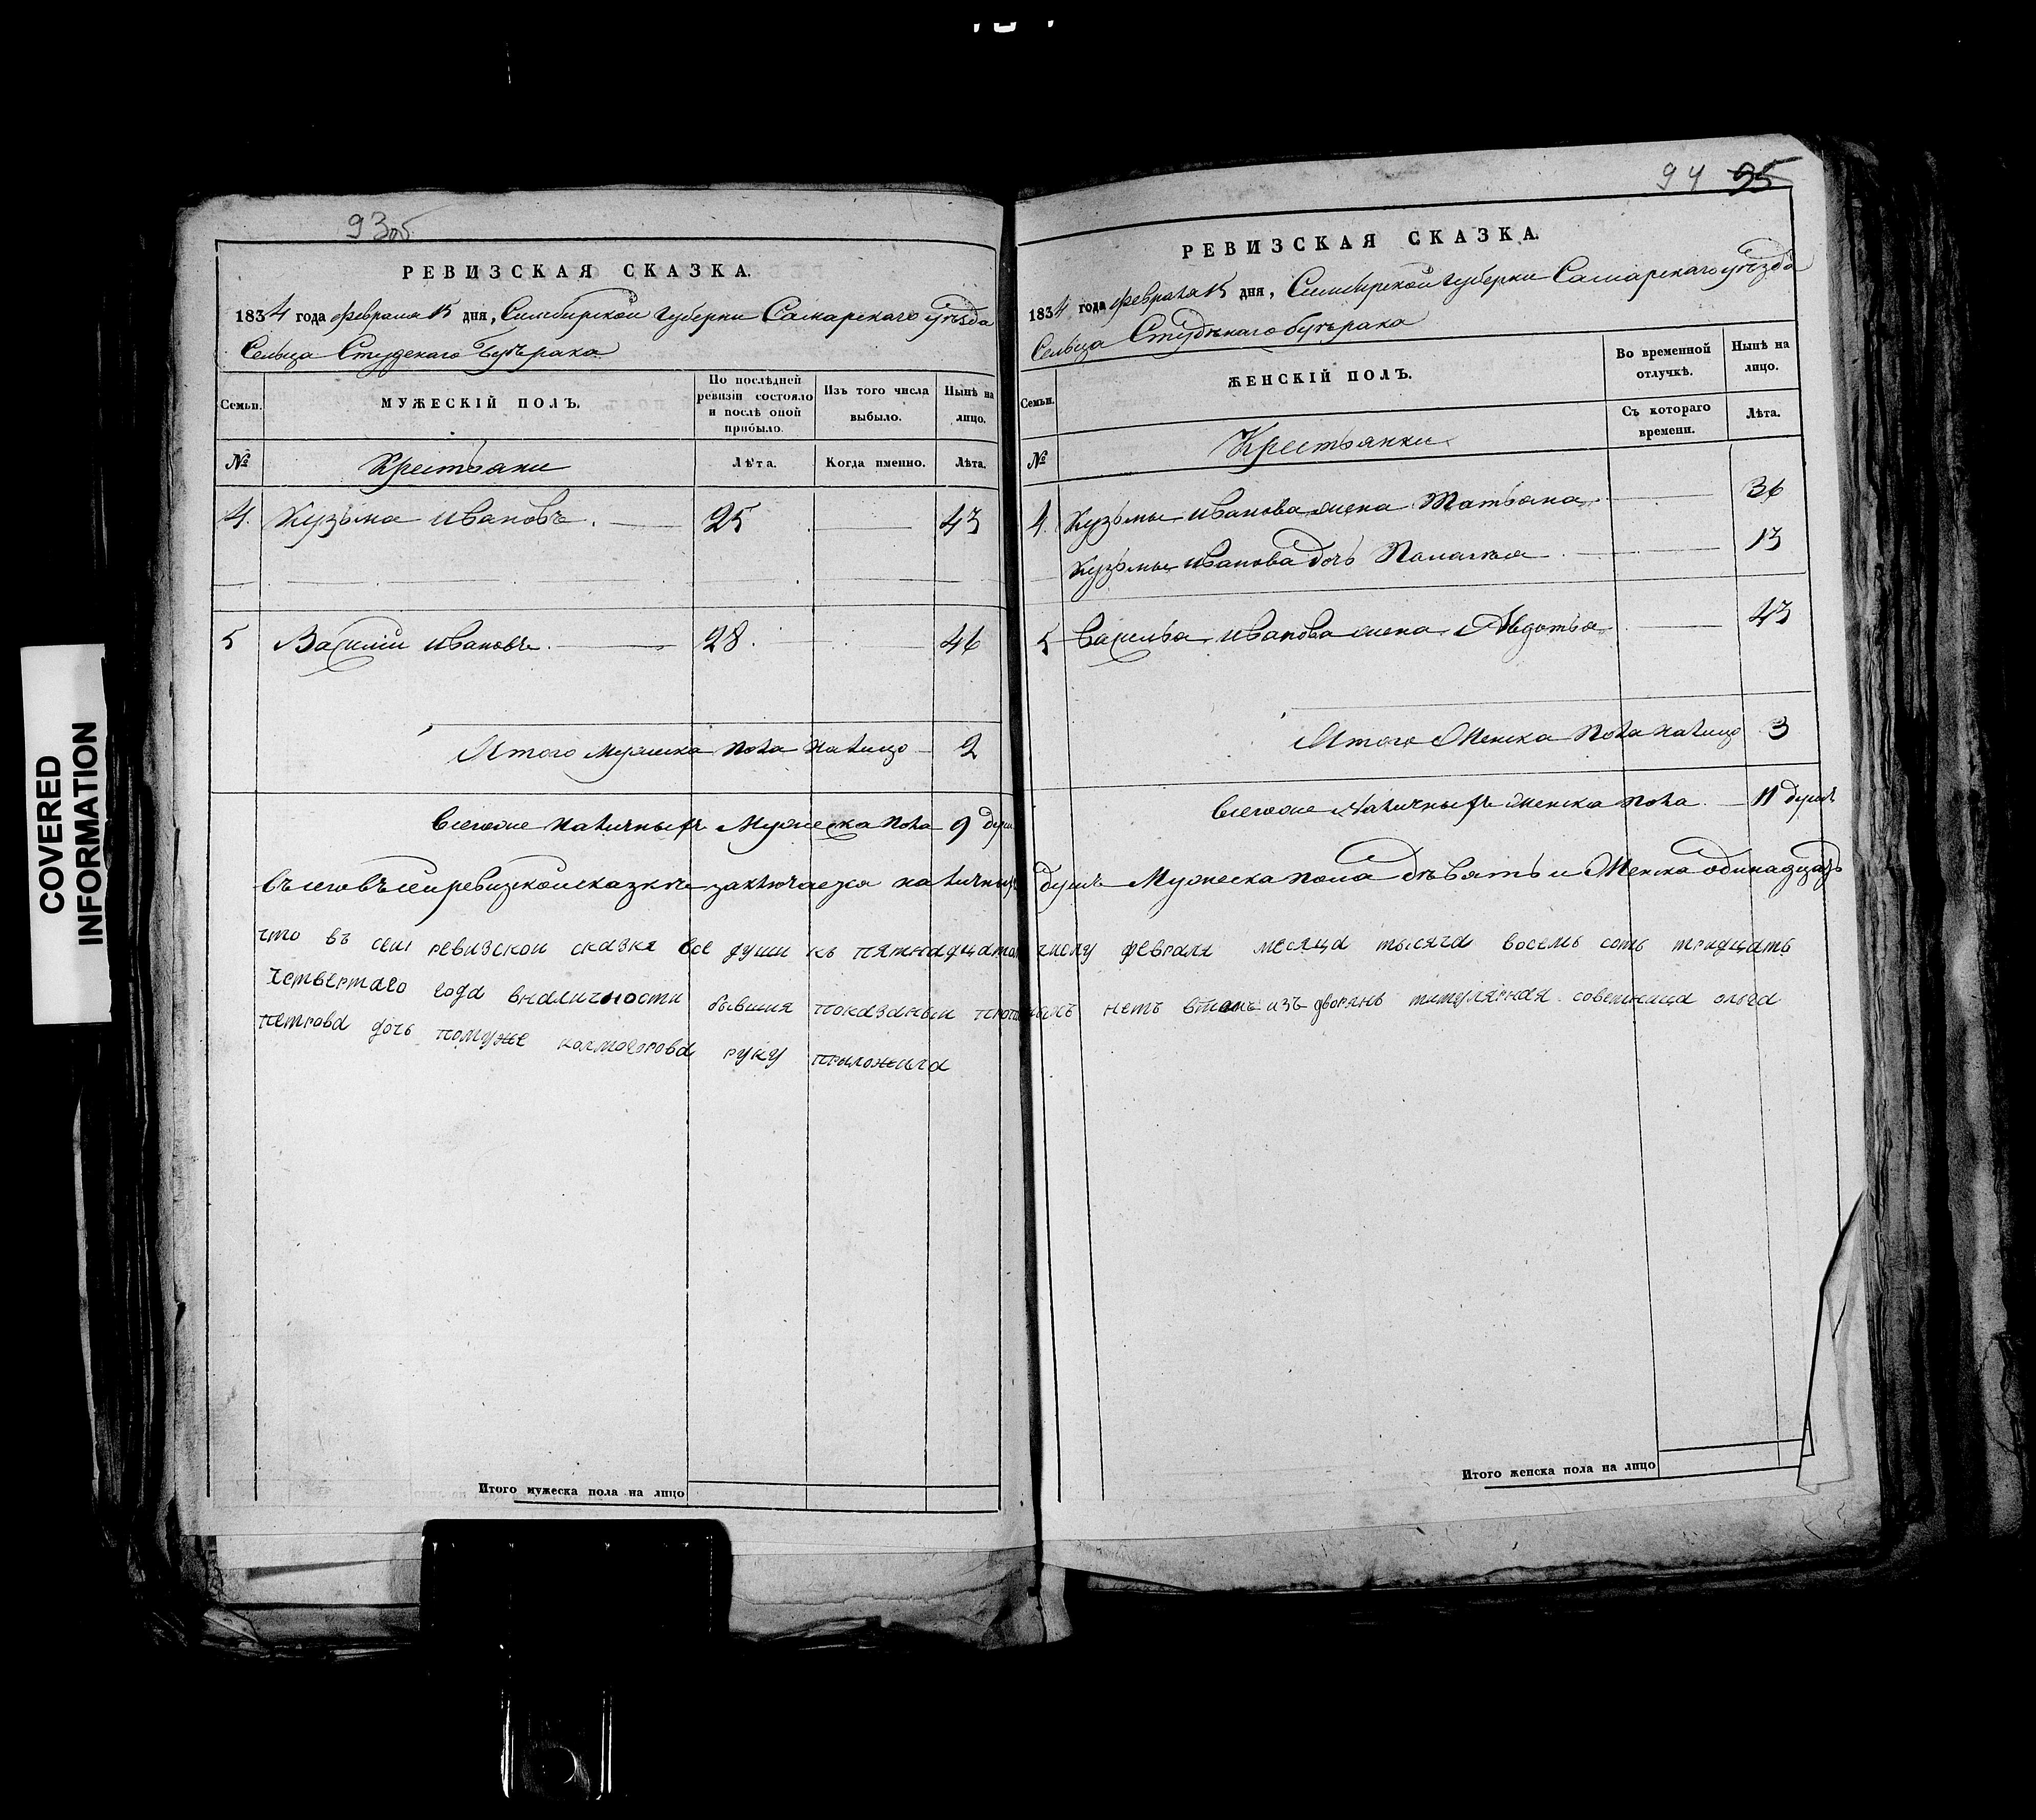 COVERED
INFORMATION
93об
РЕВИЗСКАЯ СКАЗКА.
1834 года февраля 15 дня, Симбирской губерни Самарскаго уѣзда
Сельца Студенаго Буерака
Семьи.
МУЖЕСКІЙ ПОЛЪ.
По послѣдней ревизіи состояло и послѣ оной прибыло.
Изъ того числа выбыло.
Нынѣ на лицо.
№
Крестьяни
Лѣта.
Когда именно.
Лѣта.
4. Кузьма Ивановъ. 25 43
5 Василий Ивановъ. 28. 46
Итого мужеска пола на лицо 2
Всегоже наличныхъ Мужеска пола 9 душ
94 95
РЕВИЗСКАЯ СКАЗКА.
1834 года февраля 15 дня, Симбирской губерни Самарскаго уѣзда
Сельца Студѣнаго буѣрака
Семьи.
ЖЕНСКІЙ ПОЛЪ.
Во временной отлучкѣ.
Нынѣ на лицо.
Съ котораго времени.
Лѣта.
№
Крестьянки
4. Кузьмы Иванова жена Татьяна 36
Кузьмы Иванова дочь Палагѣя 13
5 Василья Иванова жена Авдотья 43
Итого Женска пола на лицо 3
Всегоже Наличныхъ женска пола 11 душъ
Всего въ сей ревизкой сказкѣ заключается наличныхъ душъ Мужеска пола дѣвять и Женска одинадцать
что въ сеи ревизскои сказке все души къ пятнадцатому числу февраля месяца тысяча восемь сотъ тридцать
четвертаго года вналичности бывшия показаныи нетъ изъ дворянъ титулярная советница ольга
петрова дочь помуже калмогорова руку приложила
Итого мужеска пола на лицо
Итого женска пола на лицо